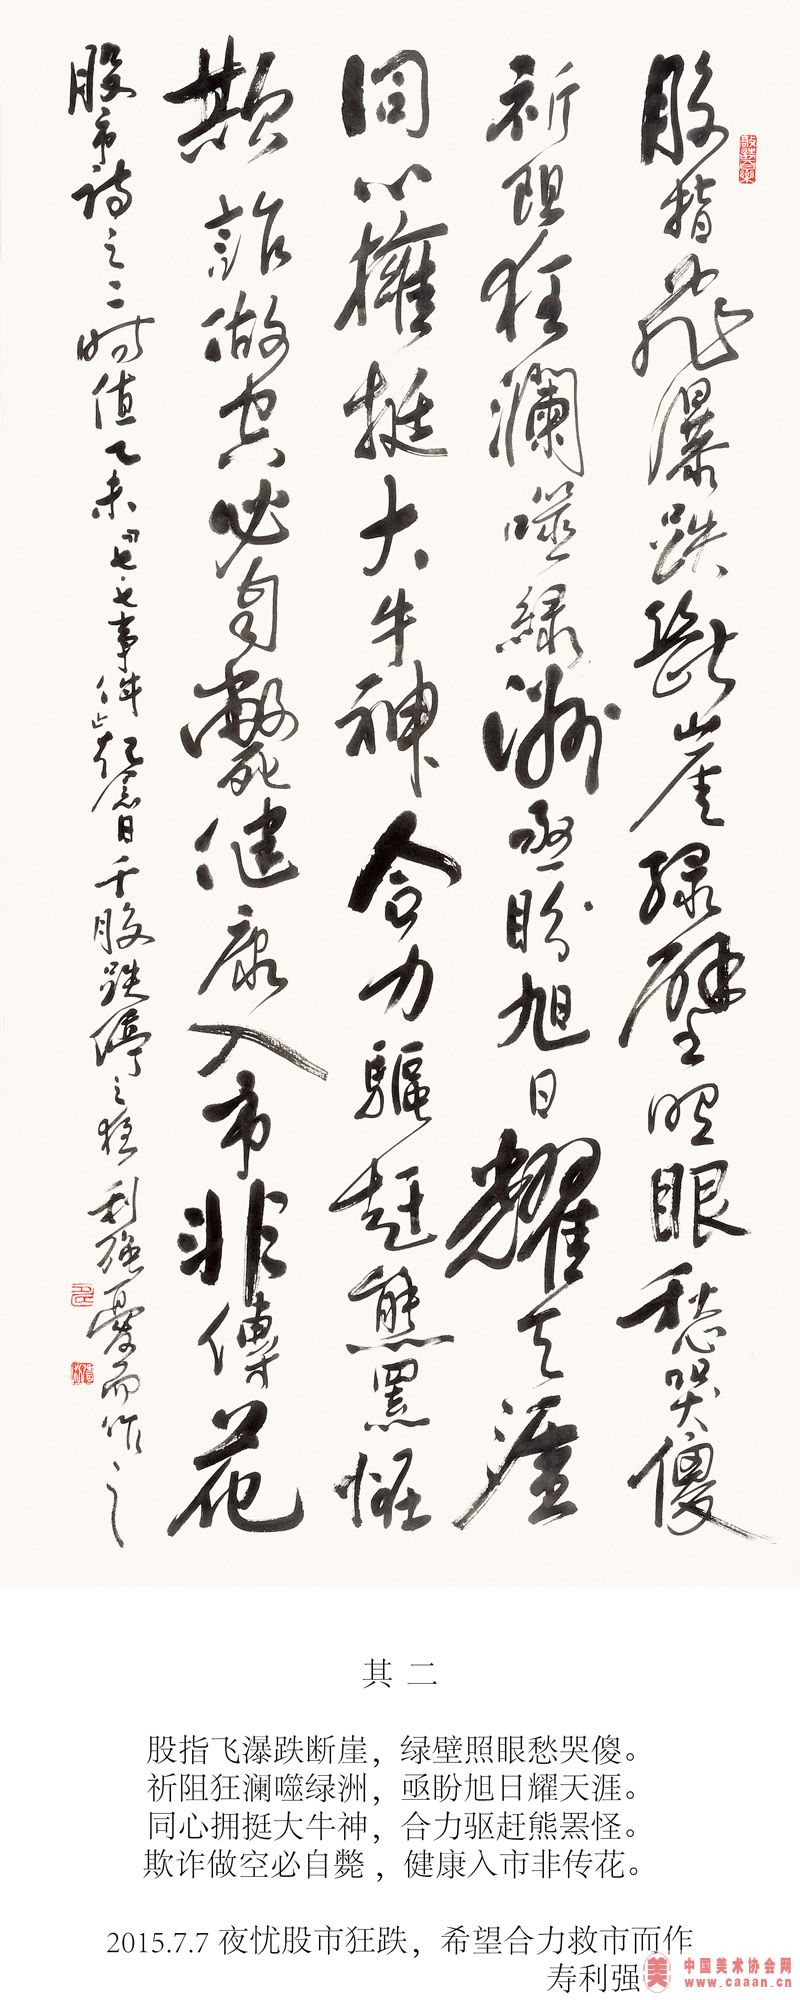 股指飛瀑跌斷崖緑壁照眼愁哭傻
祈阻狂瀾噬緑洲亟盼旭日耀天涯
同心擁挺大牛神合力驅趕熊羆怪
欺詐做空必自斃健康入市非傳花
股市詩之二時值乙未『七·七事件』紀念日千股跌停之夜利強憂而作之
其 二
股指飞瀑跌断崖，绿壁照眼愁哭傻。
祈阻狂澜噬绿洲，亟盼旭日耀天涯。
同心拥挺大牛神，合力驱赶熊罴怪。
欺诈做空必自毙，健康入市非传花。
2015.7.7 夜忧股市狂跌，希望合力救市而作
寿利强
美 中国美术协会网
www.caaan.cn